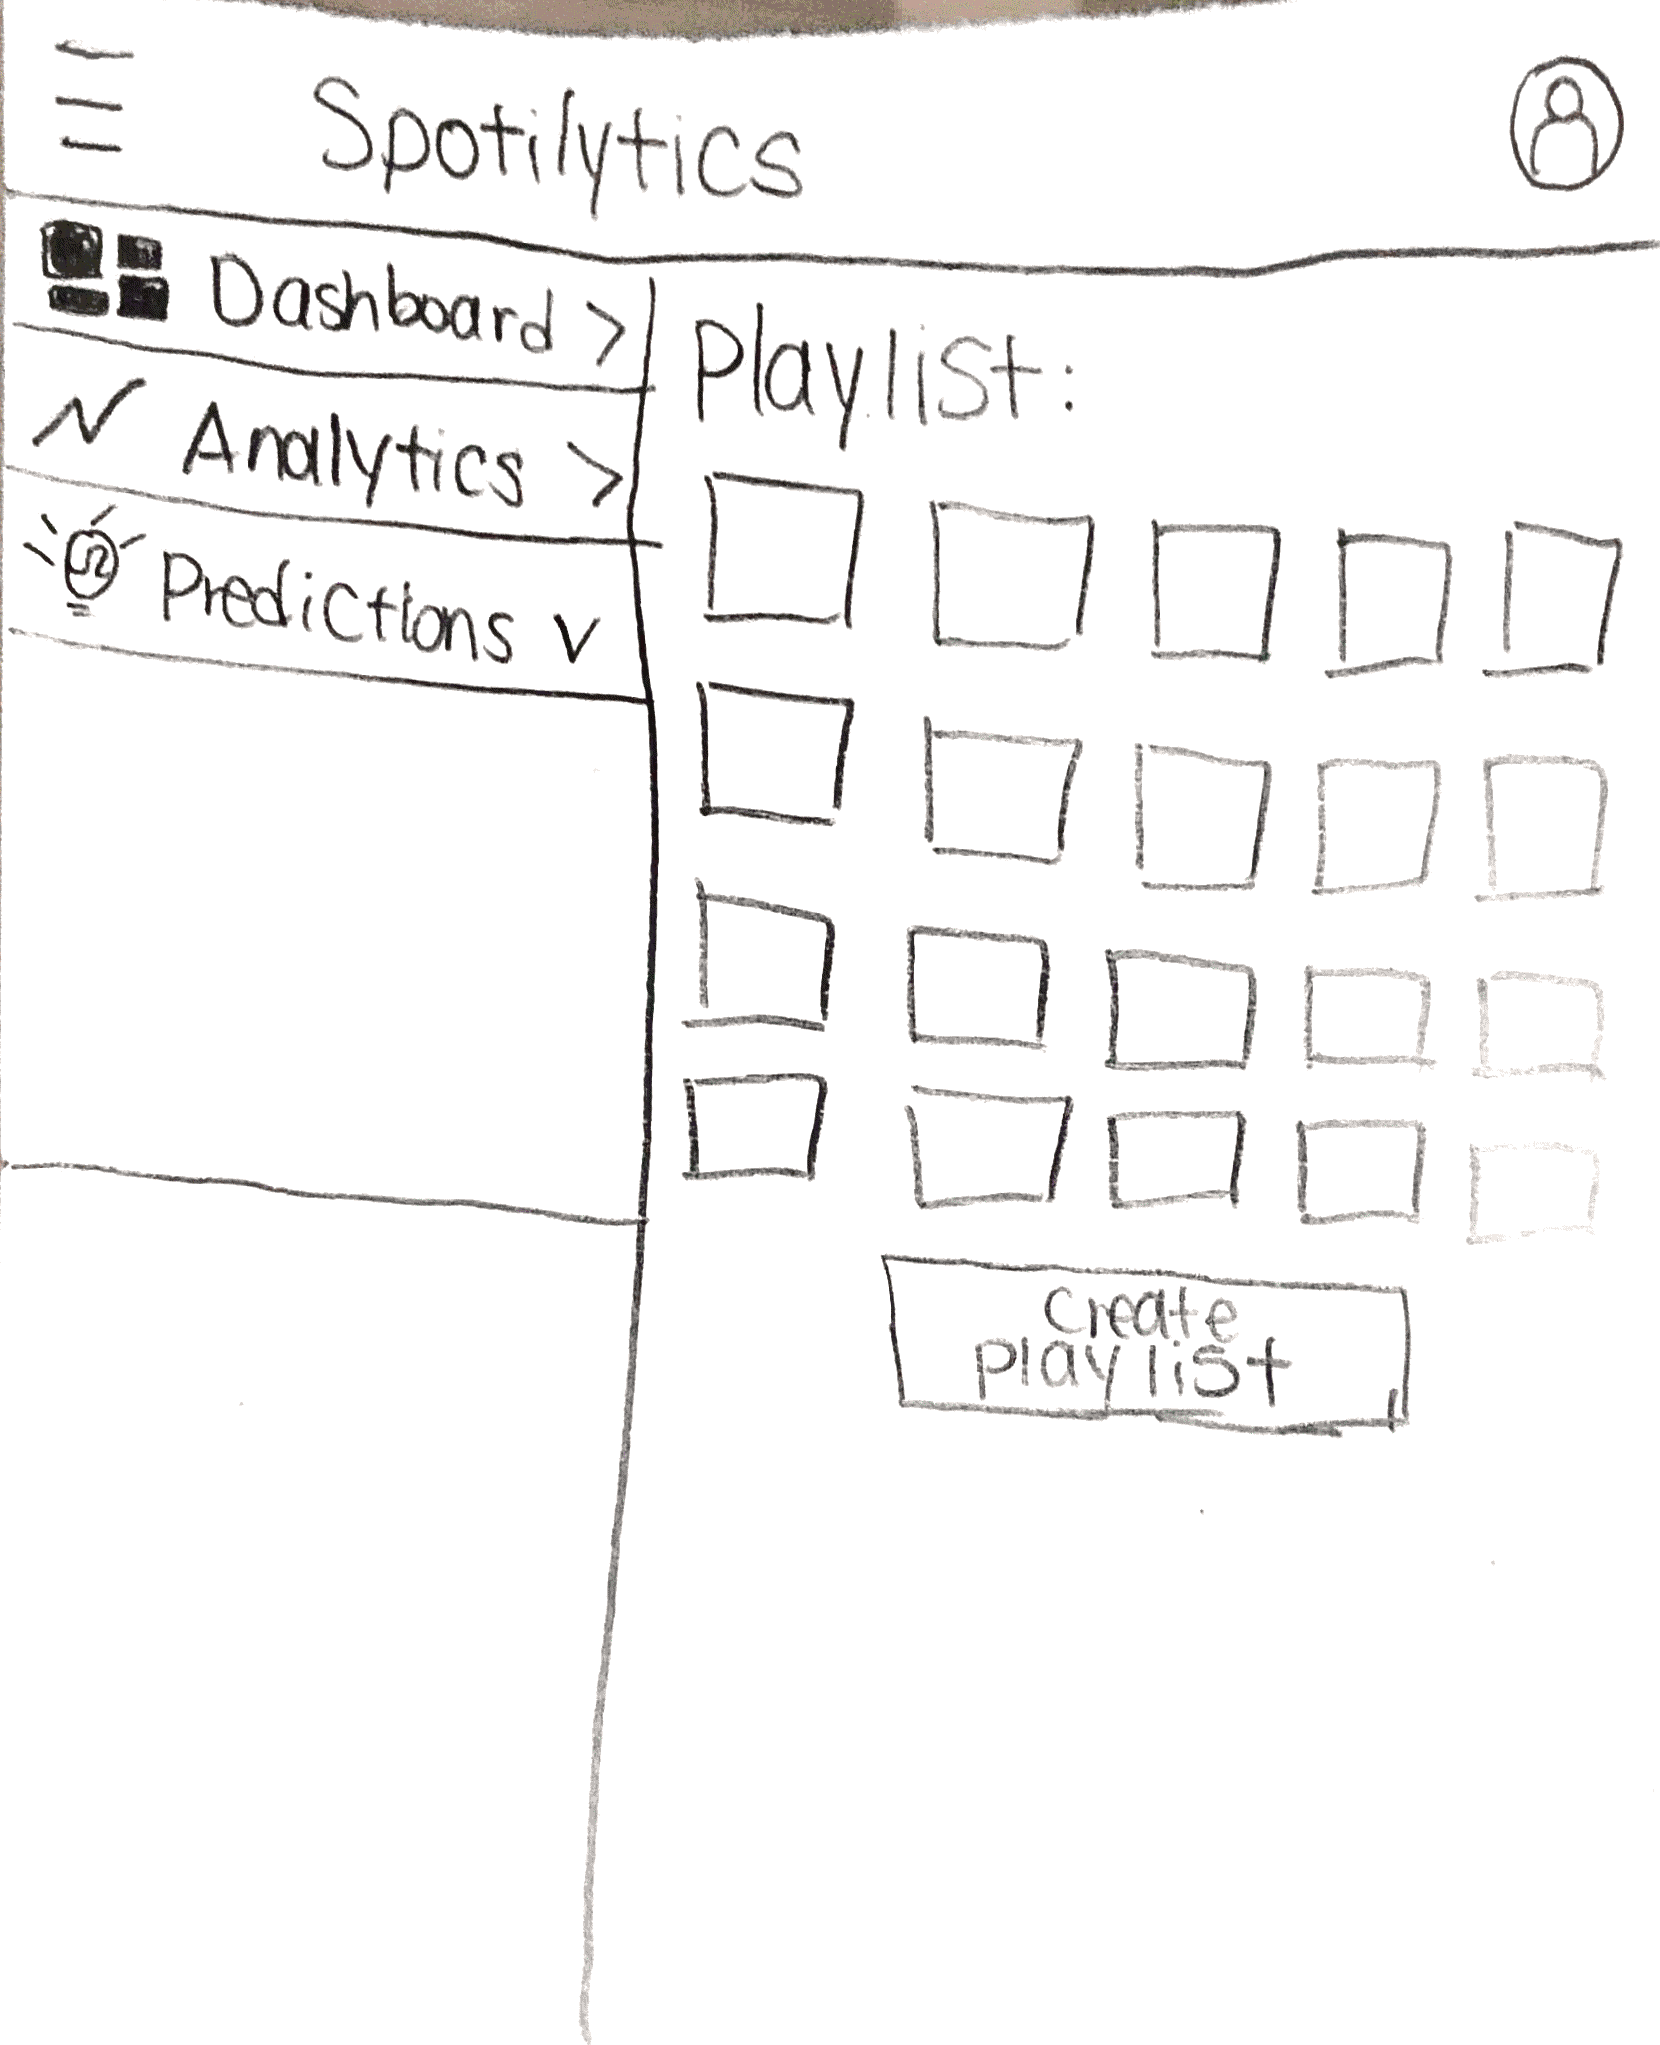 Spotilytics
Dashboard >
Analytics >
Predictions v
Playlist:
Create
playlist